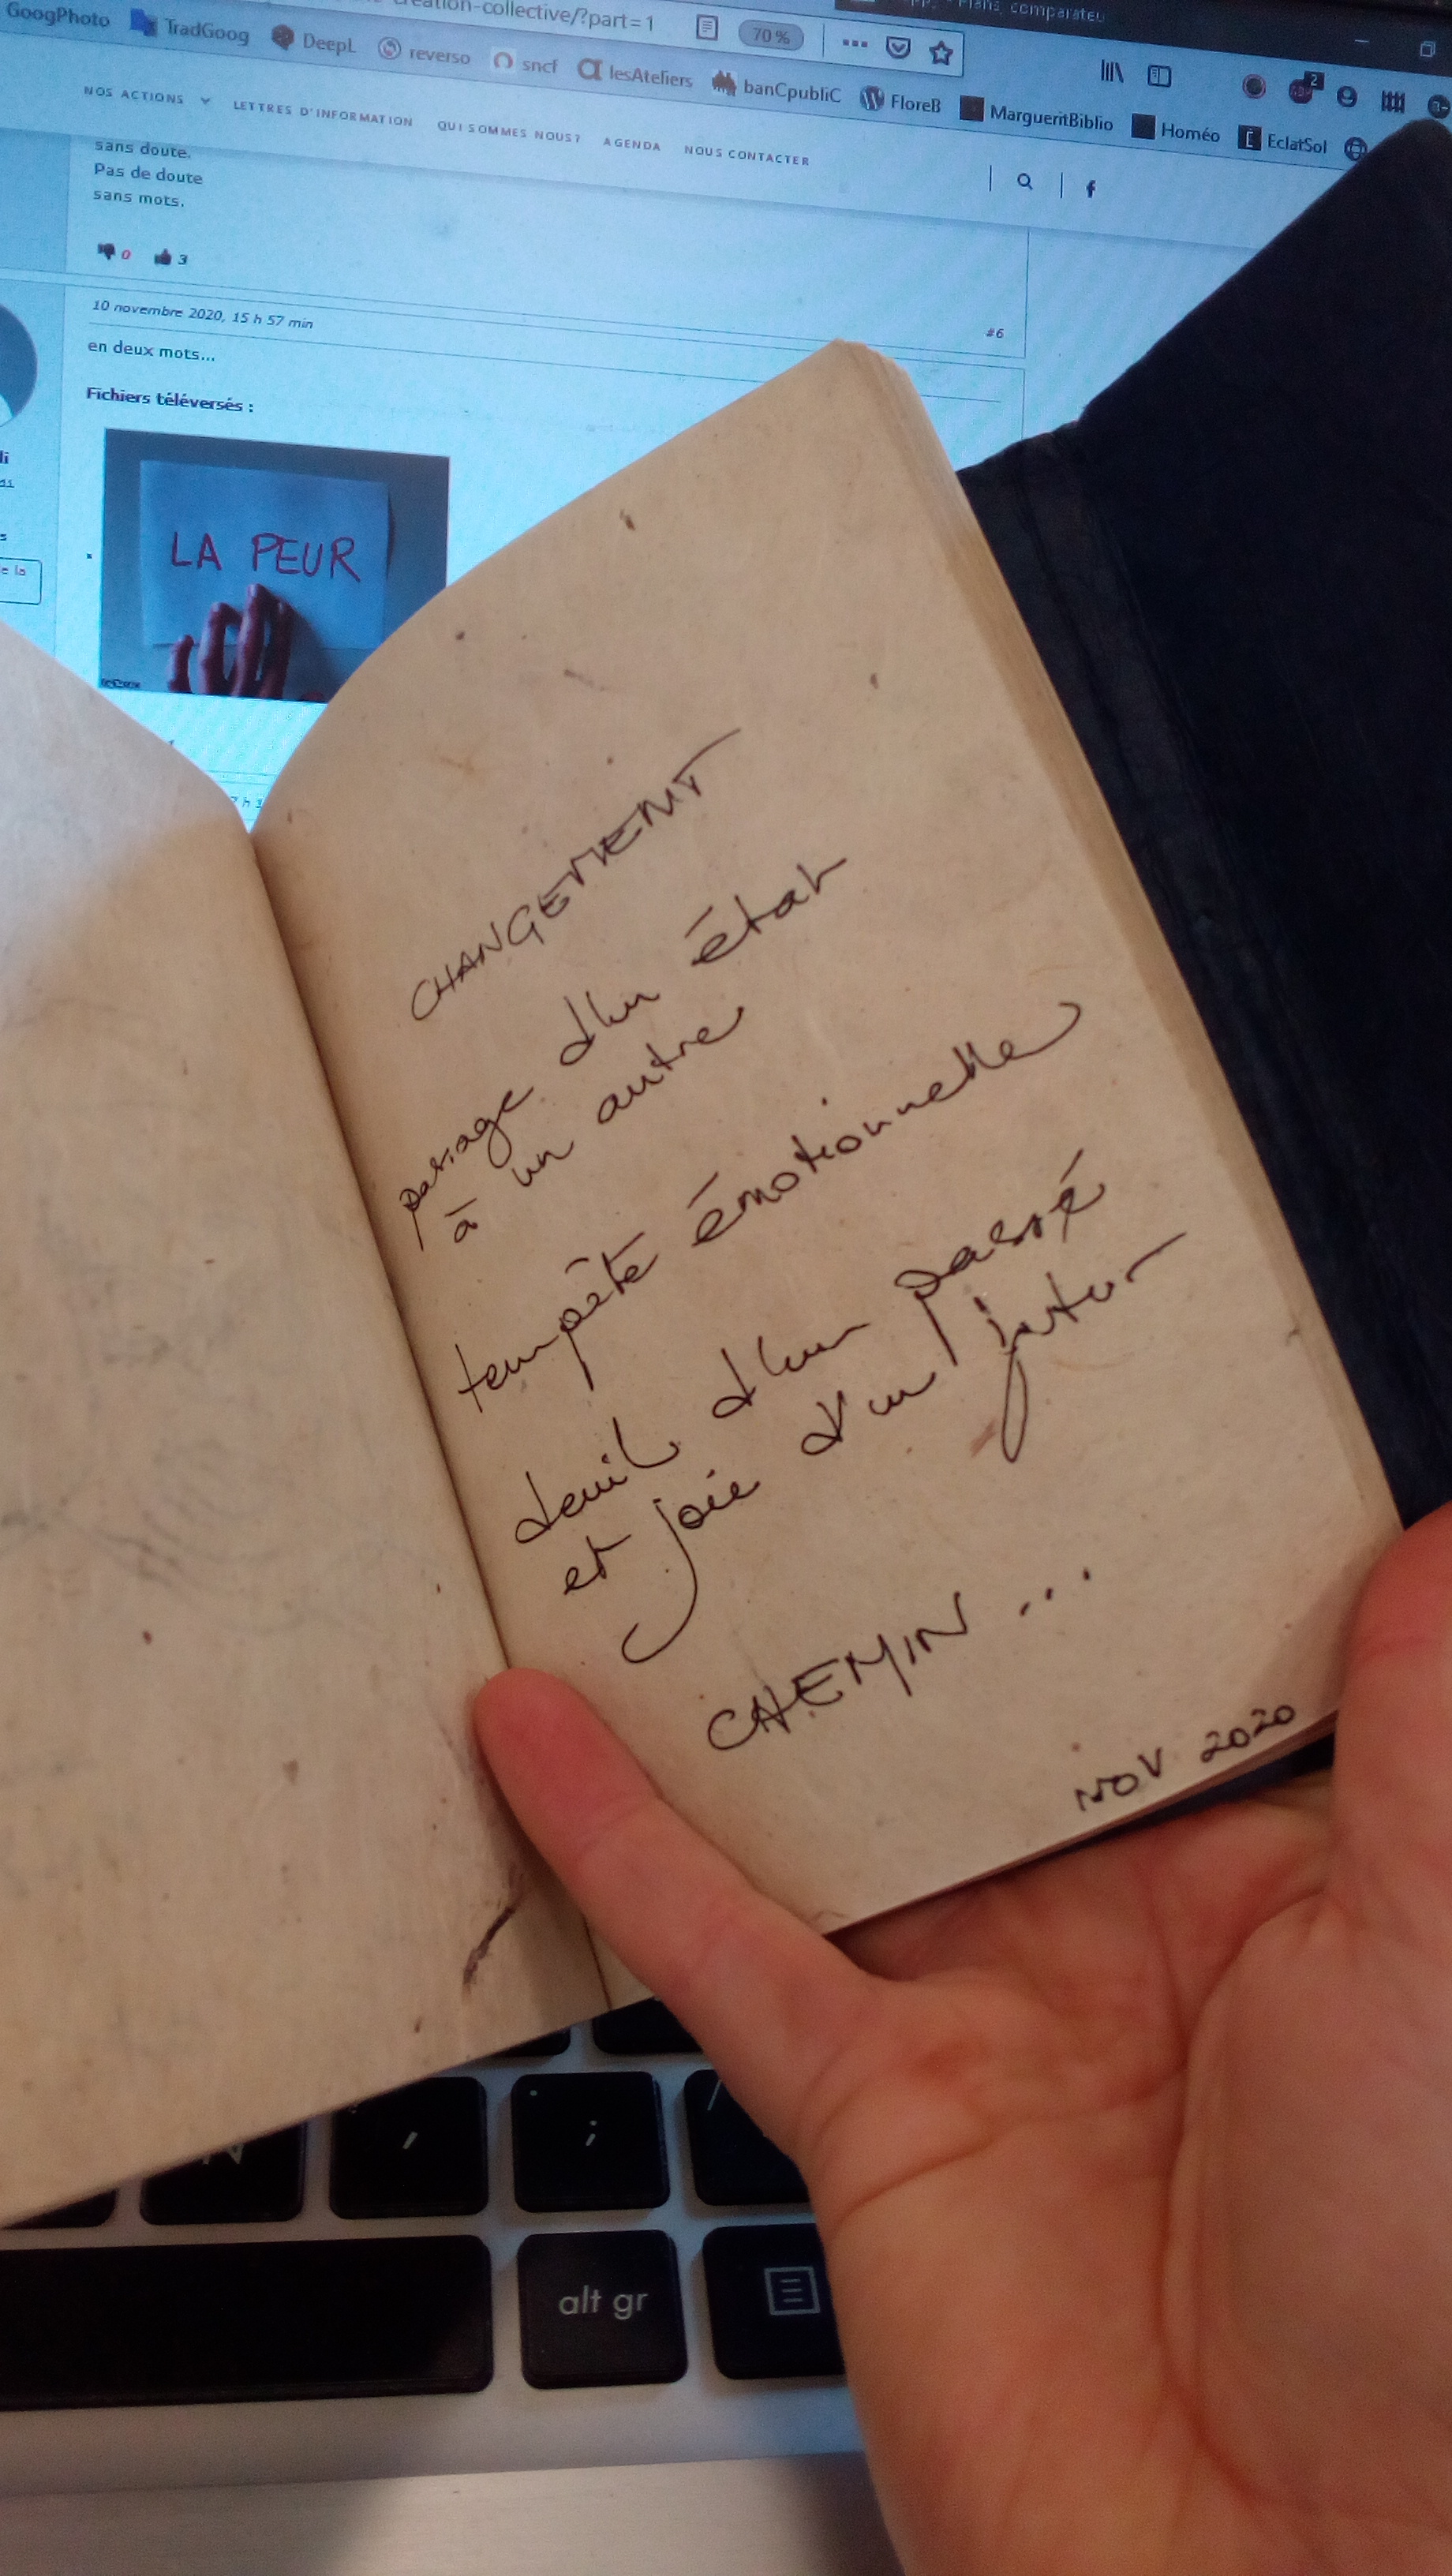 création-collective/?part=1
70 %
Plans, comparateu
GoogPhoto TradGoog DeepL reverso sncf lesAteliers banCpubliC FloreB MargueritBiblio Homéo EclatSol
2
NOS ACTIONS LETTRES D'INFORMATION QUI SOMMES NOUS? AGENDA NOUS CONTACTER
sans doute.
Pas de doute
sans mots.
0 3
10 novembre 2020, 15 h 57 min #6
en deux mots...
Fichiers téléversés :
LA PEUR
CHANGEMENT
passage d'un état
à un autre
tempête émotionnelle
deuil d'un passé
et joie d'un futur
CHEMIN ...
NOV 2020
N , ; /
alt gr